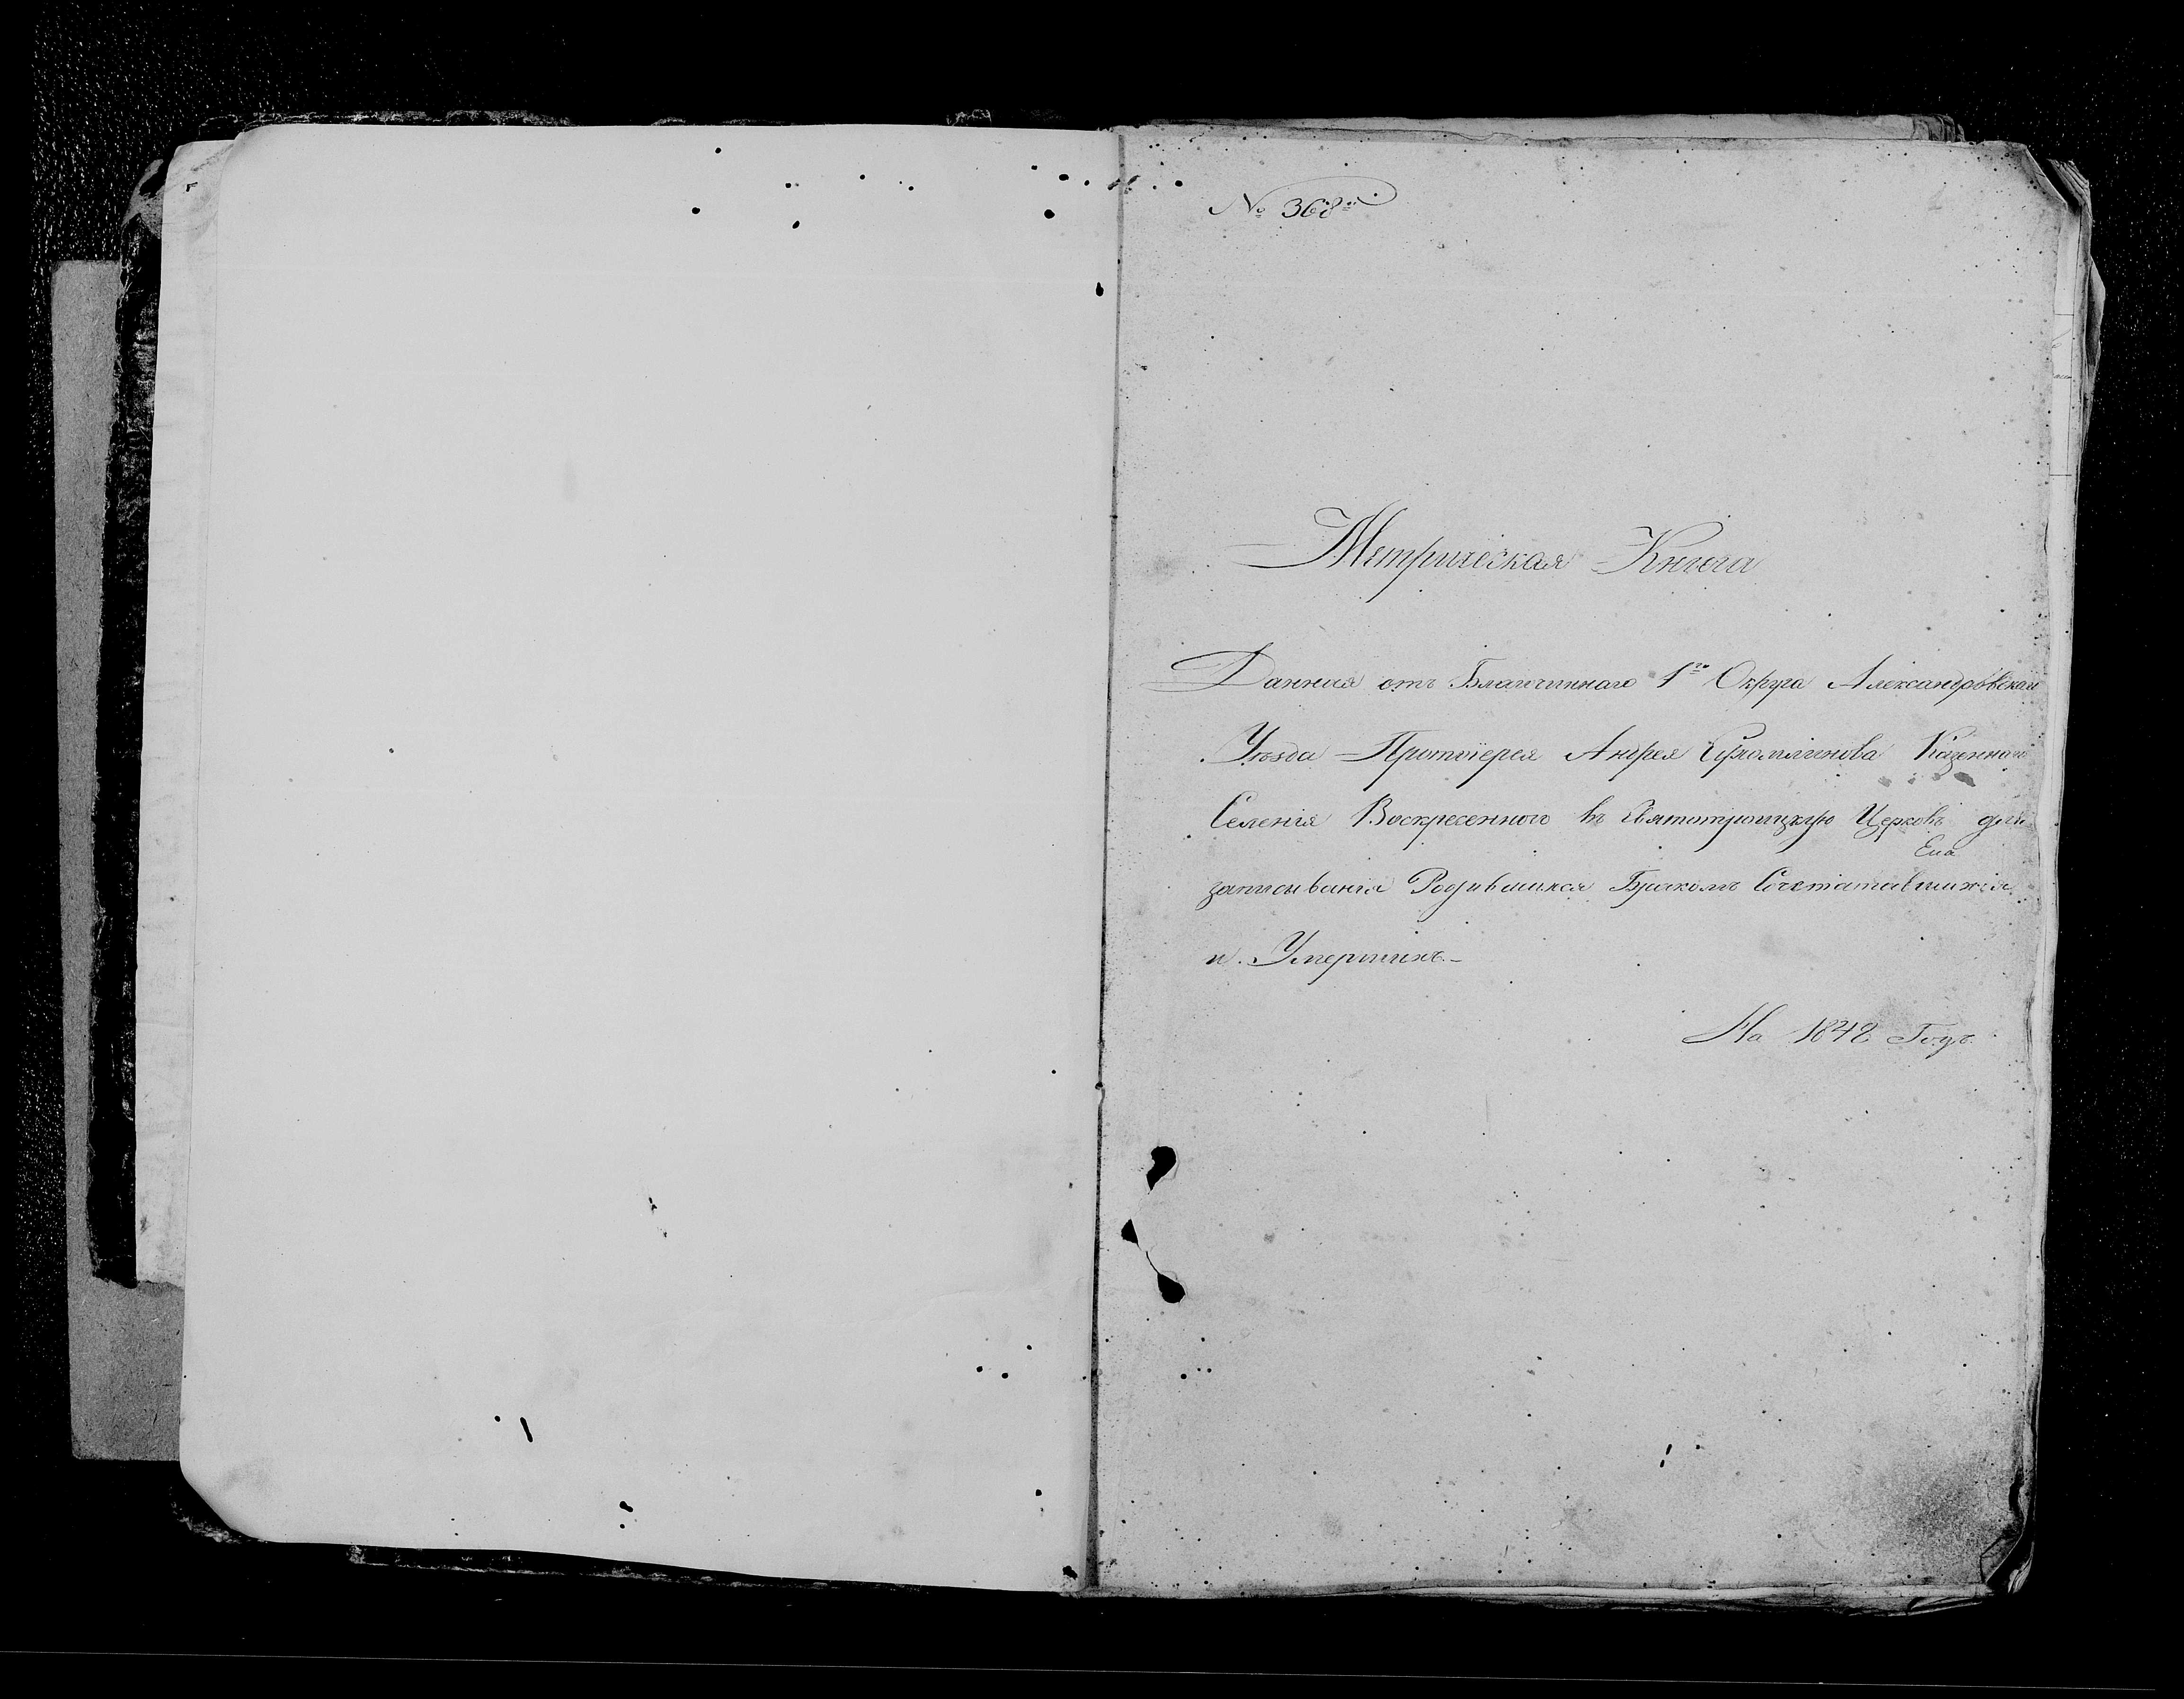 № 368й
Метрическая Книга
Данная отъ Благочиннаго 1го Округа Александровскаго
Уѣзда Протоіерея Андрея Казеннаго
Селенія Воскресенного въ Святотроицкую Церковь для
записыванія Родившихся Бракомъ Сочетавшихся
и Умершихъ.-
На 1848 Годъ.